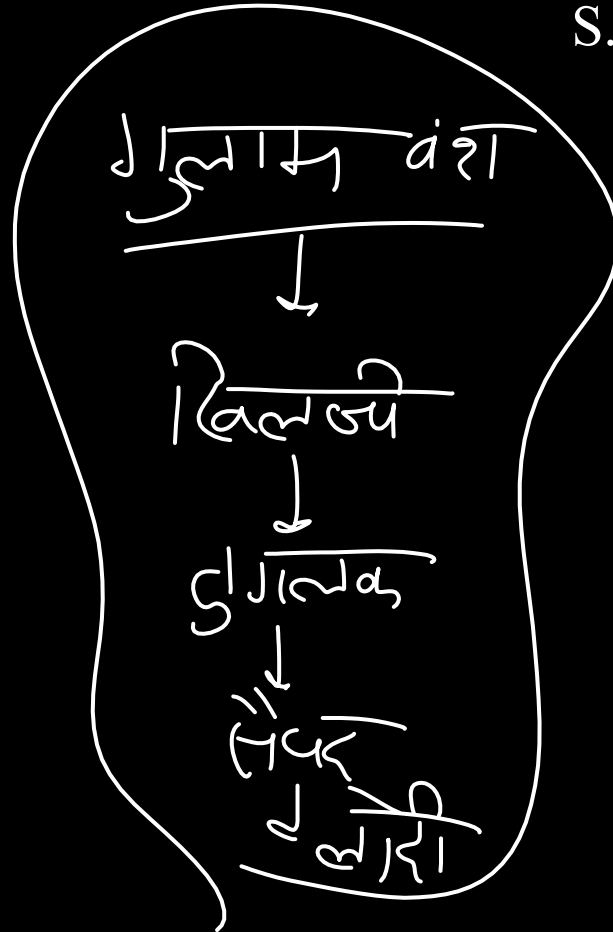 S.
गुलाम वंश
खिलजी
तुगलक
सैयद
लोदी